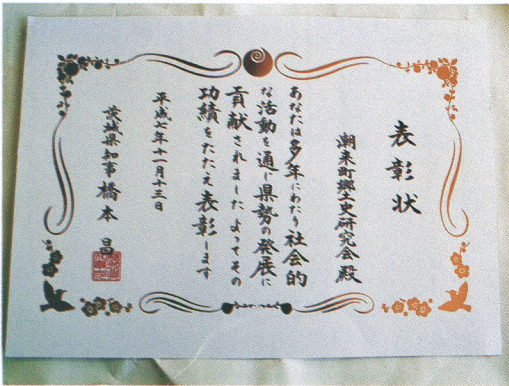 表彰状
潮来町郷土史研究会殿
あなたは多年にわたり社会的
な活動を通じ県勢の発展に
貢献されましたよってその
功績をたたえ表彰します
平成七年十一月十三日
茨城県知事橋本昌